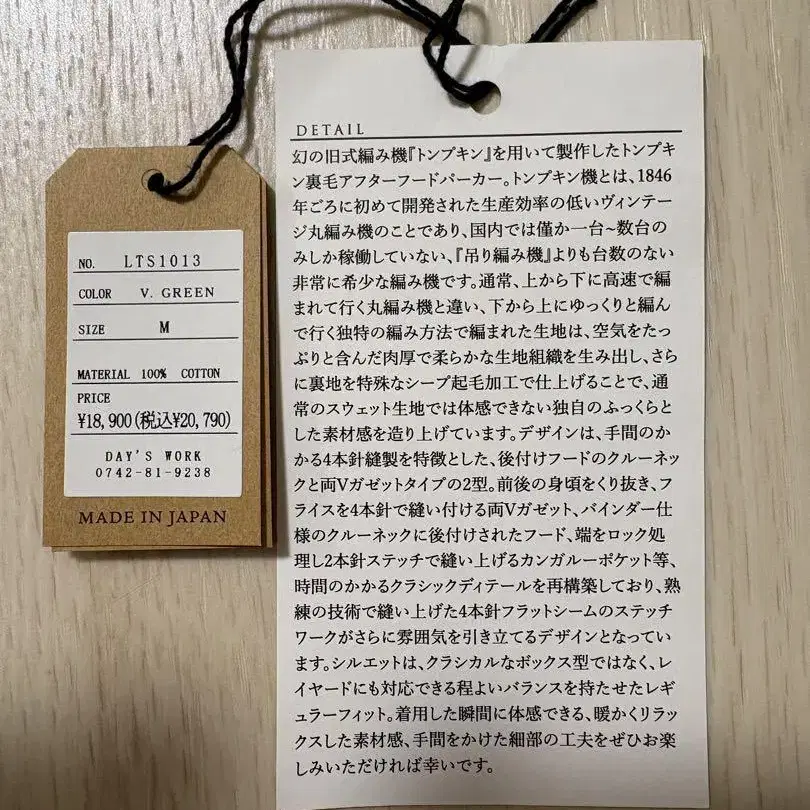 NO. LTS1013
COLOR V. GREEN
SIZE M
MATERIAL 100% COTTON
PRICE
¥18,900(税込¥20,790)
DAY'S WORK
0742-81-9238
MADE IN JAPAN
DETAIL
幻の旧式編み機『トンプキン』を用いて製作したトンプキ
ン裏毛アフターフードパーカー。トンプキン機とは、1846
年ごろに初めて開発された生産効率の低いヴィンテー
ジ丸編み機のことであり、国内では僅か一台~数台の
みしか稼働していない、『吊り編み機』よりも台数のない
非常に希少な編み機です。通常、上から下に高速で編
まれて行く丸編み機と違い、下から上にゆっくりと編ん
で行く独特の編み方法で編まれた生地は、空気をたっ
ぷりと含んだ肉厚で柔らかな生地組織を生み出し、さら
に裏地を特殊なシープ起毛加工で仕上げることで、通
常のスウェット生地では体感できない独自のふっくらと
した素材感を造り上げています。デザインは、手間のか
かる4本針縫製を特徴とした、後付けフードのクルーネッ
クと両Vガゼットタイプの2型。前後の身頃をくり抜き、フ
ライスを4本針で縫い付ける両Vガゼット、バインダー仕
様のクルーネックに後付けされたフード、端をロック処
理し2本針ステッチで縫い上げるカンガルーポケット等、
時間のかかるクラシックディテールを再構築しており、熟
練の技術で縫い上げた4本針フラットシームのステッチ
ワークがさらに雰囲気を引き立てるデザインとなってい
ます。シルエットは、クラシカルなボックス型ではなく、レ
イヤードにも対応できる程よいバランスを持たせたレギ
ュラーフィット。着用した瞬間に体感できる、暖かくリラッ
クスした素材感、手間をかけた細部の工夫をぜひお楽
しみいただければ幸いです。